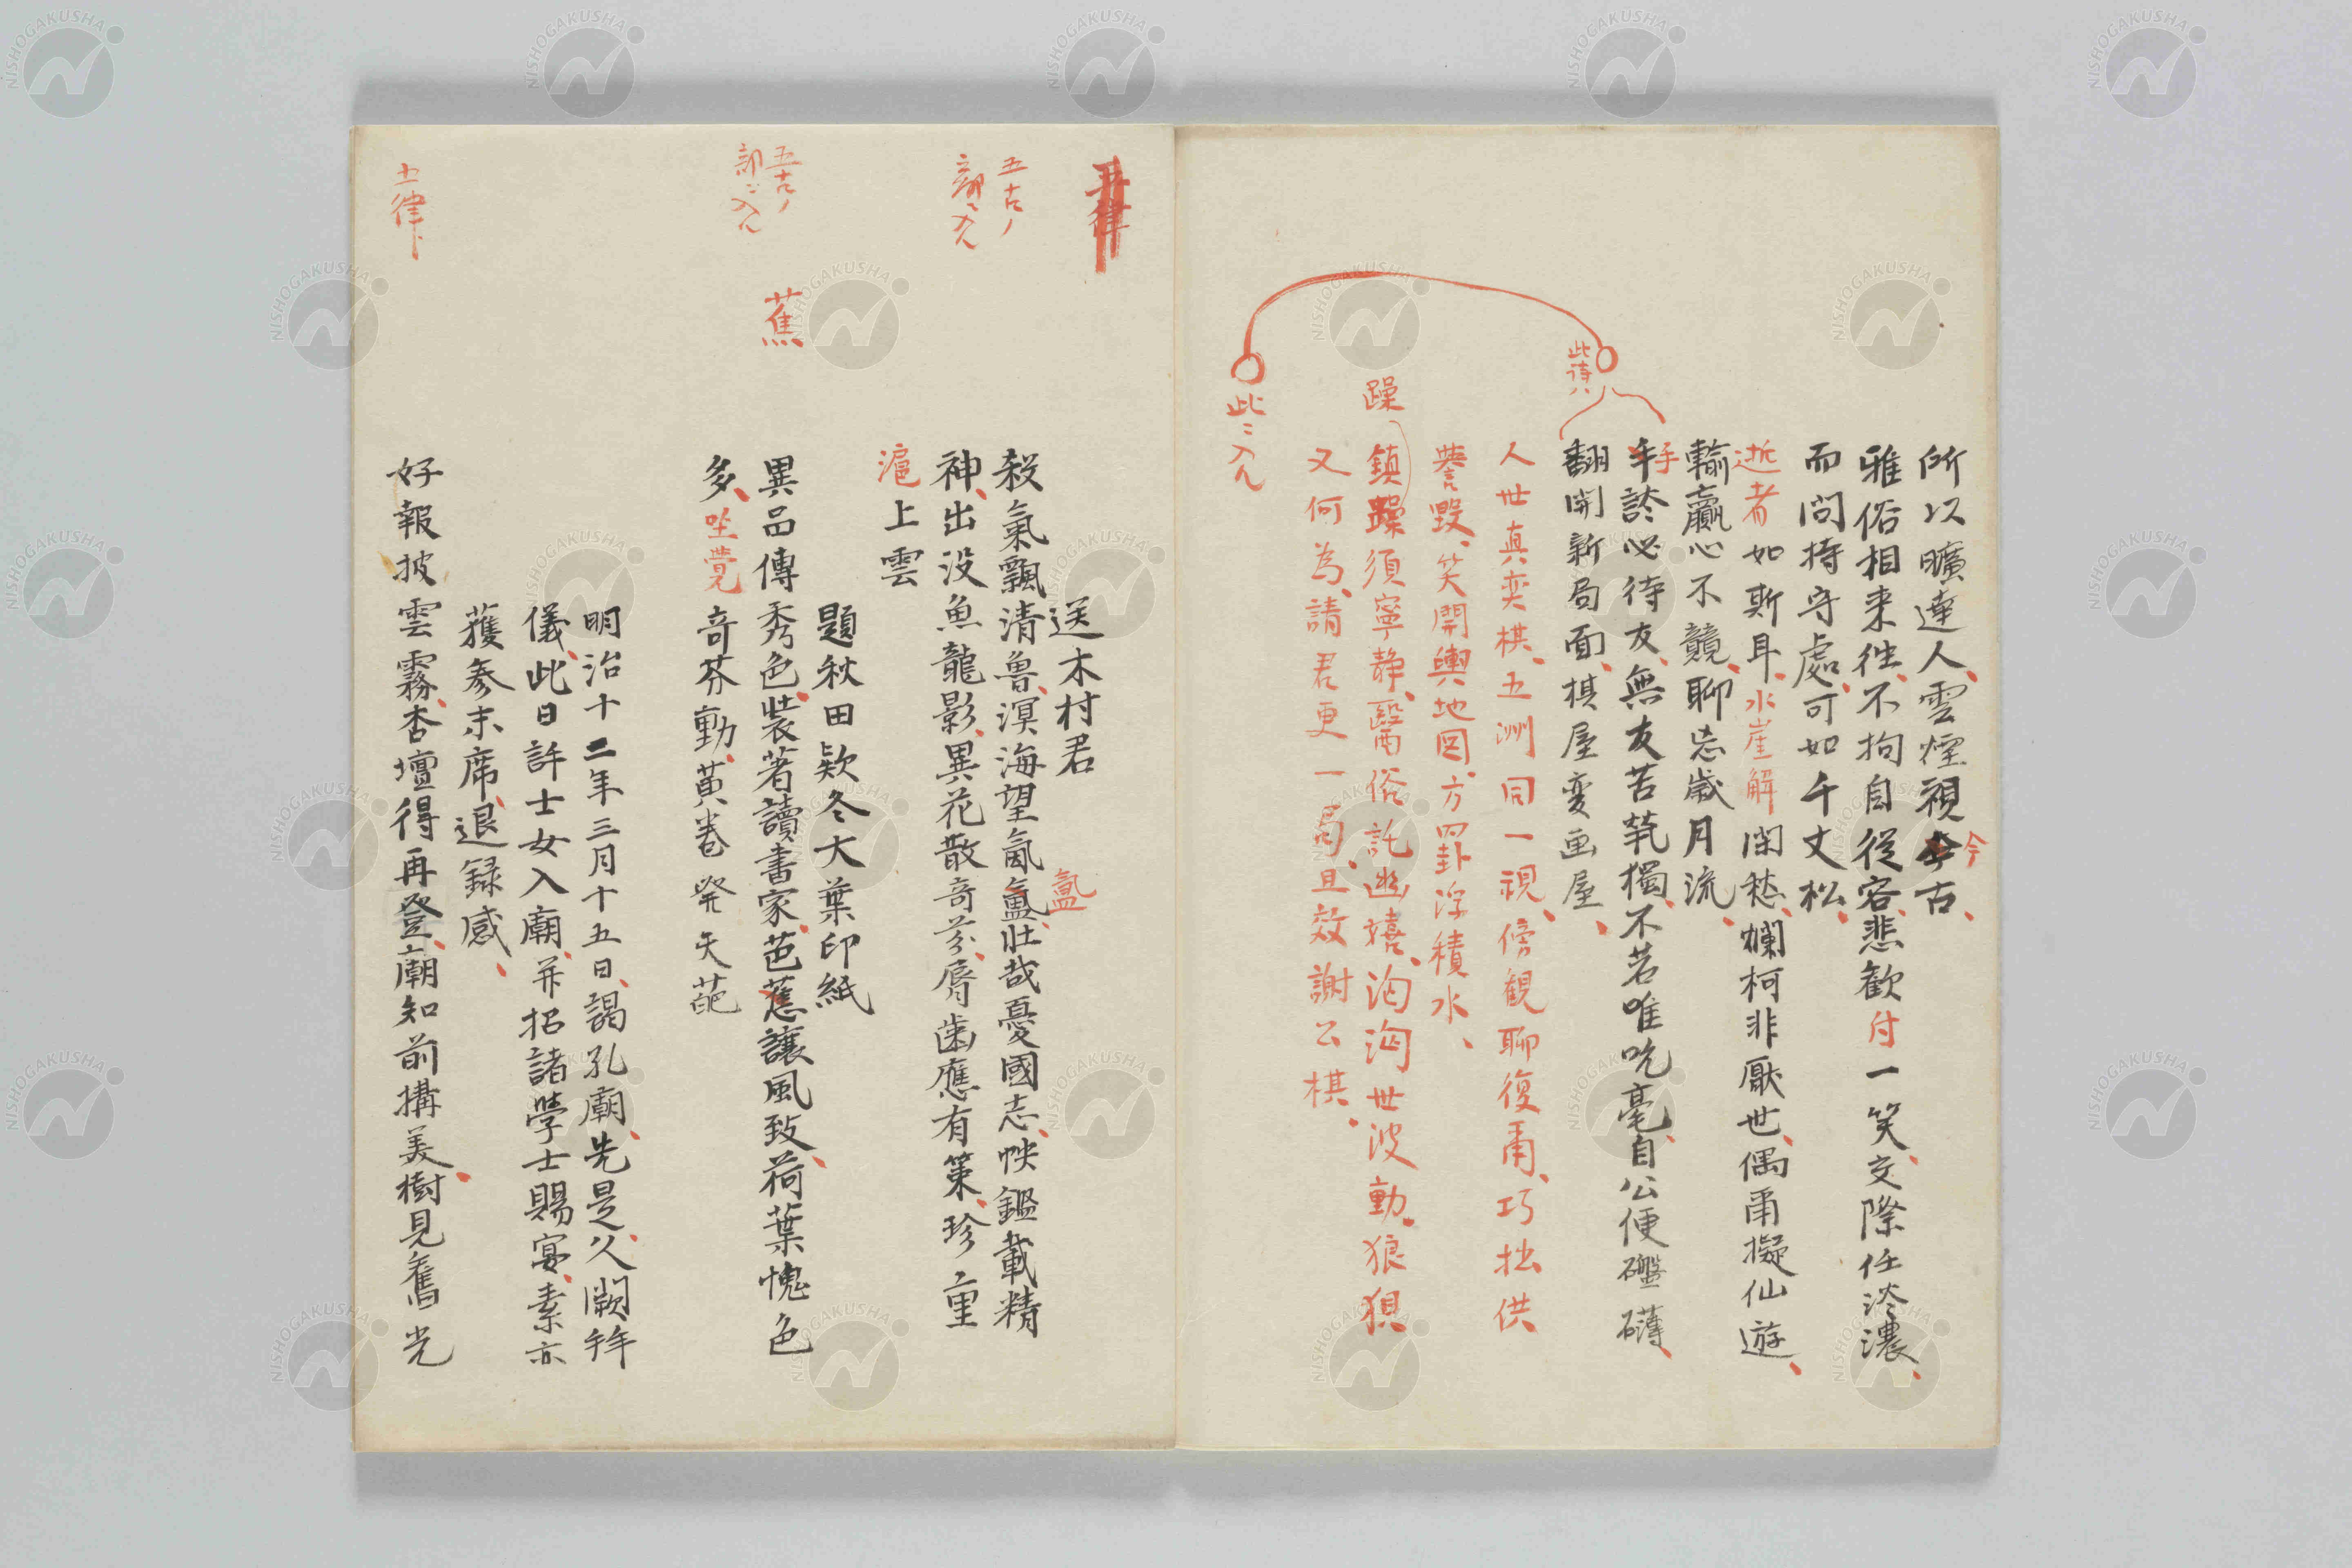 所以曠達人、雲煙視今古、
雅俗相来往、不拘自從容、悲歓付一笑、交際任淡濃、
而問持守處、可如千丈松、
逝者如斯耳、水崖解閑愁、爛柯非厭世、偶爾擬仙遊、
輸贏心不競、聊忘歳月流、
手談必待友、無友苦煢獨、不若唯吮毫、自公便礴礴
翻開新局面、棋屋変画屋、
此詩ハ
人世真奕棋、五洲同一視、傍観聊復爾、巧拙供
誉毀、笑開輿地図、方罫浮積水、
躁
鎮躁須寧静、醫俗託幽嬉、洶洶世波動、狼狽
又何為、請君更一局、且效謝公棋、
此ニ入ル
五律
送木村君
五古ノ
部ニ入ル
殺氣飄清魯、溟海望氤氳、壮哉憂國志、怏鑑載精
氳
神、出没魚龍影、異花散奇芬、脣歯應有策、珍重
滬上雲
題秋田欵冬大葉印紙
五古ノ
部ニ入ル
蕉
異品傳秀色、装著讀書家、芭蕉讓風致、荷葉愧色
多、坐覺奇芬動、黄巻発天葩
明治十二年三月十五日、謁孔廟、先是久闕拜
儀、此日許士女入廟、并招諸學士賜宴、素亦
獲参末席、退録感、
五律
好報披雲霧、杏壇得再登、廟知前搆美、樹見舊光
NISHOGAKUSHA